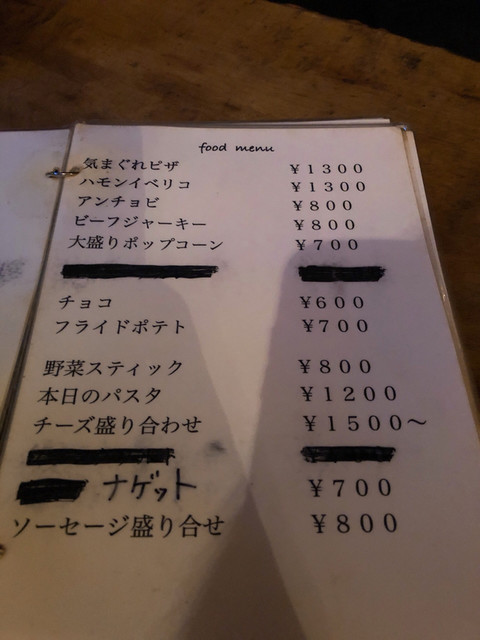 food menu
気まぐれピザ ￥１３００
ハモンイベリコ ￥１３００
アンチョビ ￥８００
ビーフジャーキー ￥８００
大盛りポップコーン ￥７００
チョコ ￥６００
フライドポテト ￥７００
野菜スティック ￥８００
本日のパスタ ￥１２００
チーズ盛り合わせ ￥１５００～
ナゲット ￥７００
ソーセージ盛り合せ ￥８００